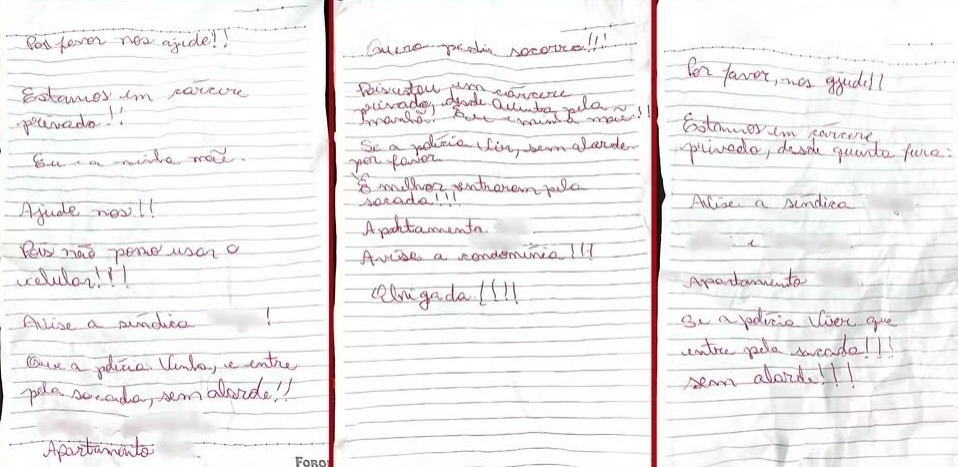 Por favor nos ajude!!
Estamos em cárcere
privado!!
Eu e a minha mãe.
Ajude nos!!
Pois não posso usar o
celular!!!
Avise a síndica !
Que a polícia Venha, e entre
pela sacada, sem alarde!!
Apartamento
Foro
Quero pedir socorro!!!
Pois estou em cárcere
privado, desde Quinta pela
manhã. Eu e minha mãe!!!
Se a polícia Vir, sem alarde
por favor
É melhor entrarem pela
sacada!!!
Apartamento
Avise a condomínio!!!
Obrigada!!!!
Por favor, nos ajude!!
Estamos em cárcere
privado, desde quinta feira:
Avise a síndica
e
Apartamento
Se a polícia Vier que
entre pela sacada!!!
sem alarde!!!